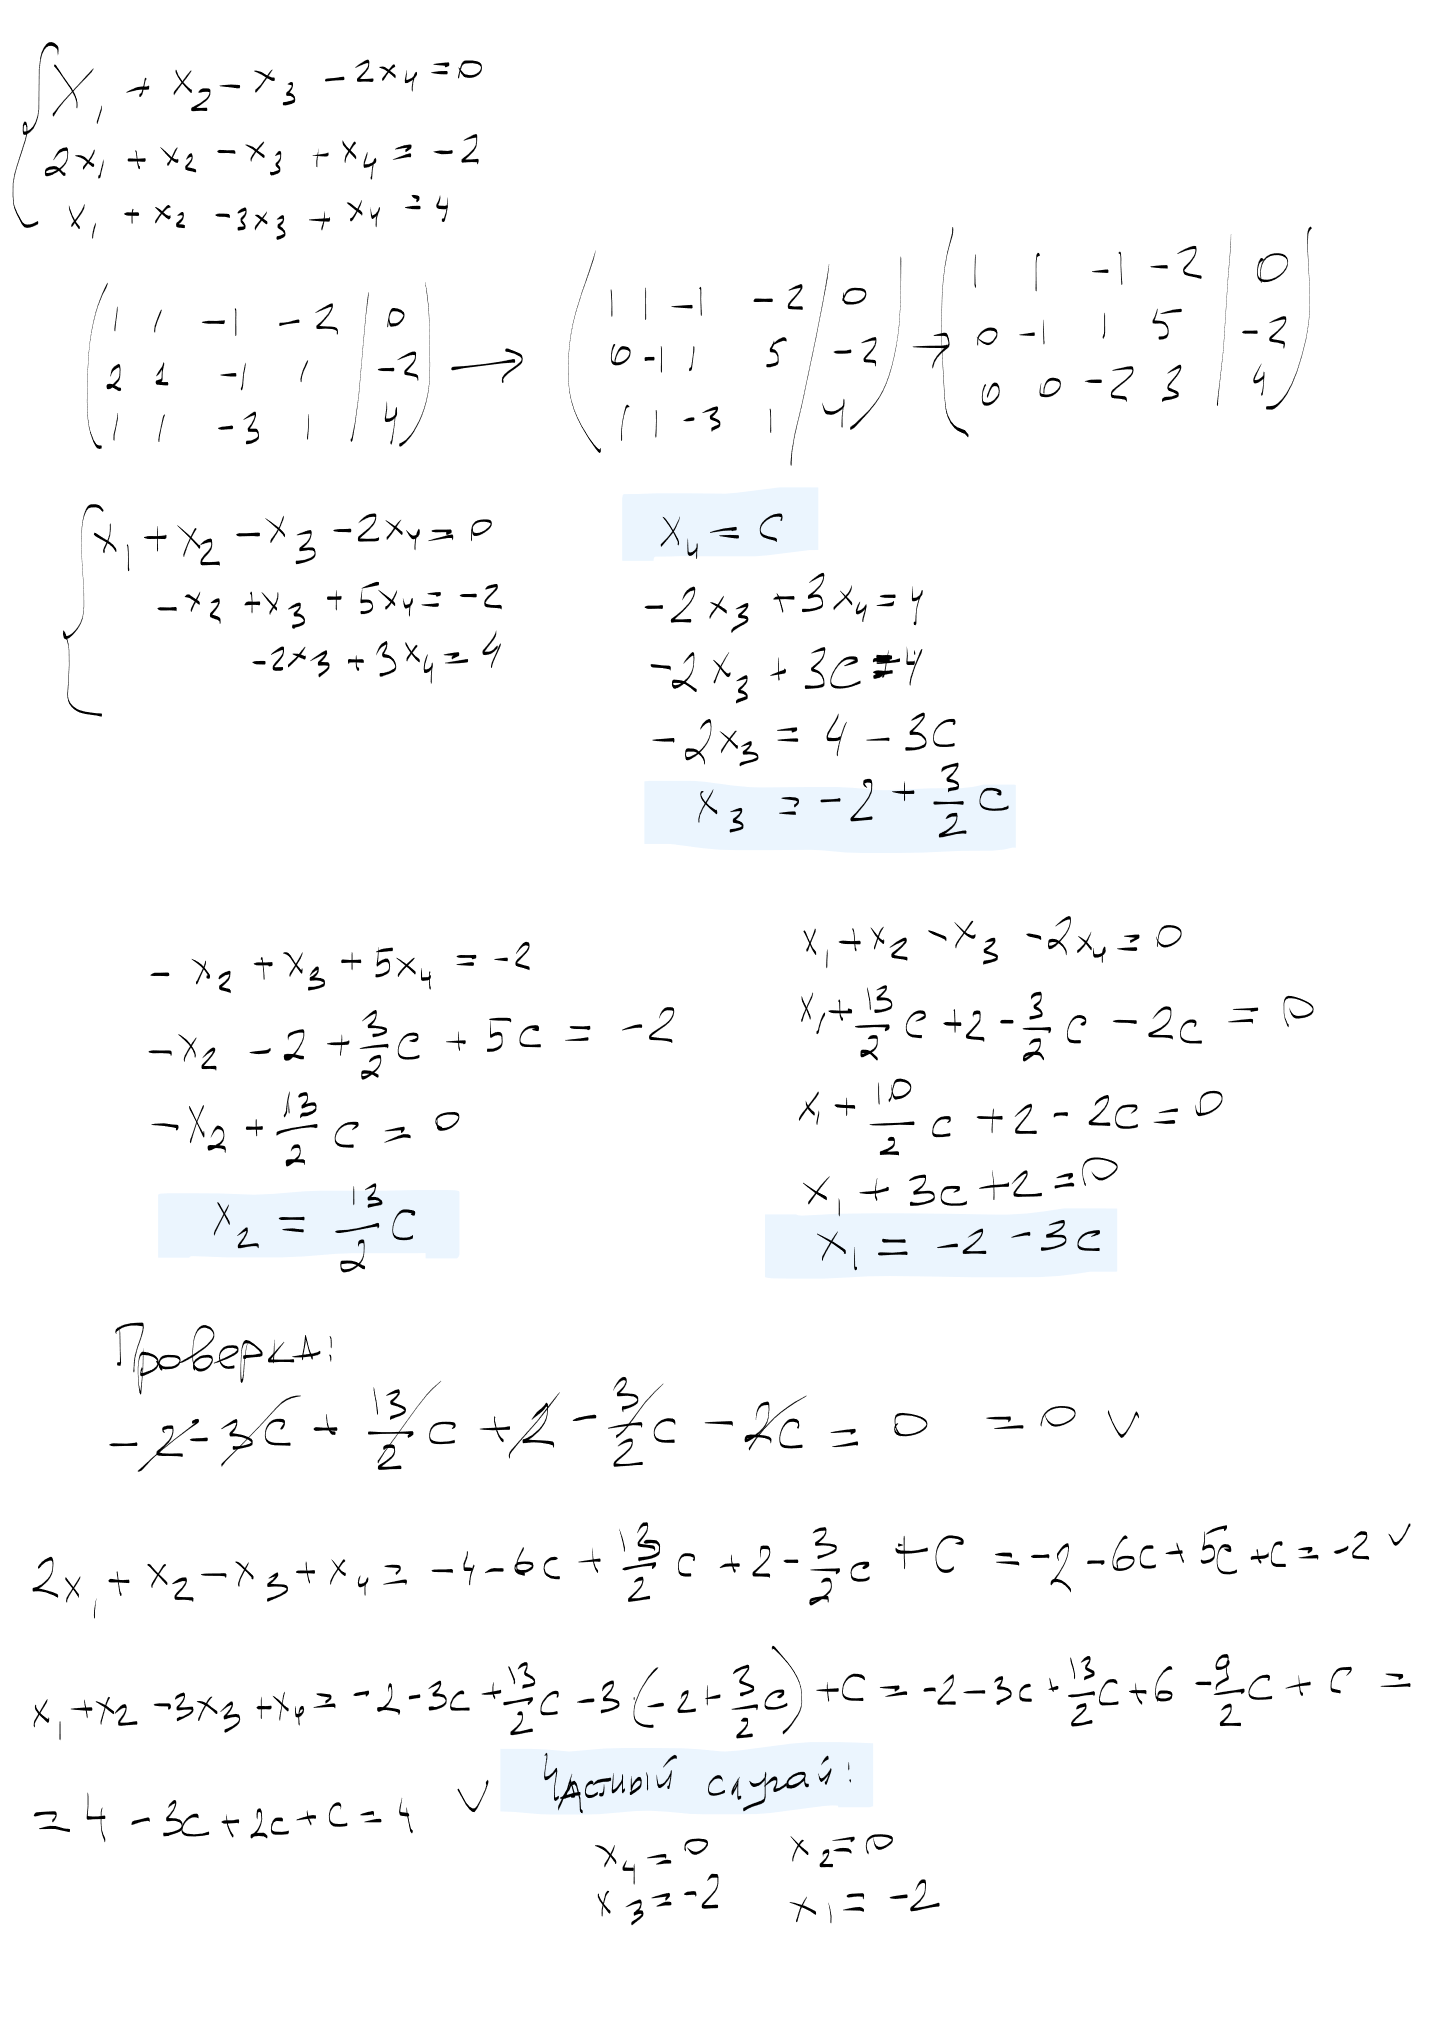 x₁ + x₂ - x₃ - 2x₄ = 0
2x₁ + x₂ - x₃ + x₄ = -2
x₁ + x₂ - 3x₃ + x₄ = 4
( 1 1 -1 -2 | 0 ) → ( 1 1 -1 -2 | 0 ) → ( 1 1 -1 -2 | 0 )
( 2 1 -1 1 | -2 ) ( 0 -1 1 5 | -2 ) ( 0 -1 1 5 | -2 )
( 1 1 -3 1 | 4 ) ( 1 1 -3 1 | 4 ) ( 0 0 -2 3 | 4 )
x₁ + x₂ - x₃ - 2x₄ = 0
-x₂ + x₃ + 5x₄ = -2
-2x₃ + 3x₄ = 4
x₄ = C
-2x₃ + 3x₄ = 4
-2x₃ + 3C = 4
-2x₃ = 4 - 3C
x₃ = -2 + 3/2 C
-x₂ + x₃ + 5x₄ = -2
-x₂ - 2 + 3/2 C + 5C = -2
-x₂ + 13/2 C = 0
x₂ = 13/2 C
x₁ + x₂ - x₃ - 2x₄ = 0
x₁ + 13/2 C + 2 - 3/2 C - 2C = 0
x₁ + 10/2 C + 2 - 2C = 0
x₁ + 3C + 2 = 0
x₁ = -2 - 3C
Проверка:
-2 - 3C + 13/2 C + 2 - 3/2 C - 2C = 0 = 0 ∨
2x₁ + x₂ - x₃ + x₄ = -4 - 6C + 13/2 C + 2 - 3/2 C + C = -2 - 6C + 5C + C = -2 ∨
x₁ + x₂ - 3x₃ + x₄ = -2 - 3C + 13/2 C - 3(-2 + 3/2 C) + C = -2 - 3C + 13/2 C + 6 - 9/2 C + C =
= 4 - 3C + 2C + C = 4 ∨
Частный случай:
x₄ = 0 x₂ = 0
x₃ = -2 x₁ = -2